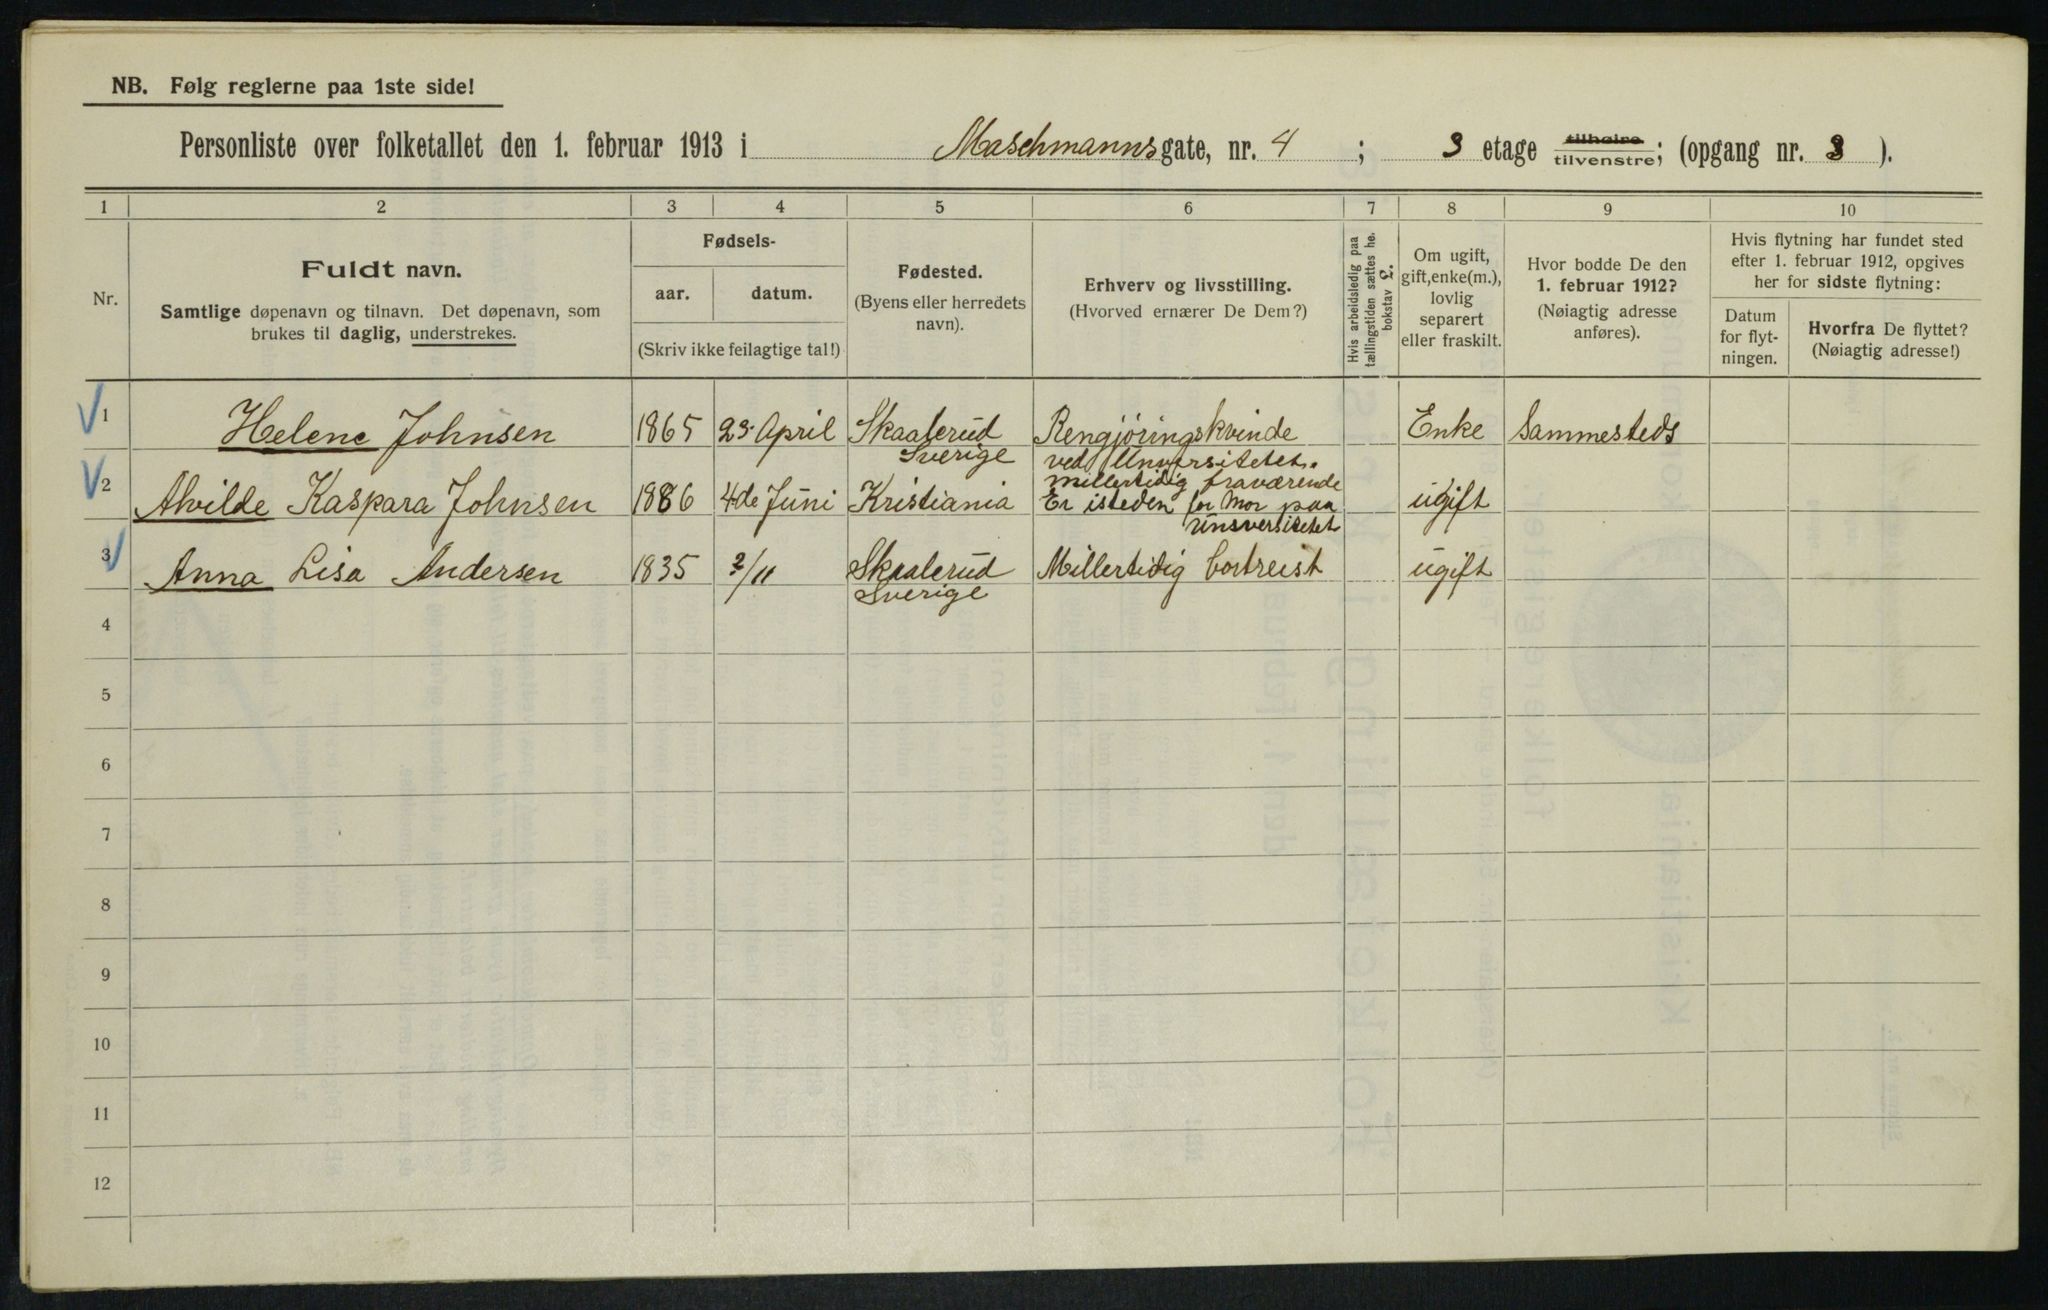 NB. Følg reglerne paa 1ste side!
Personliste over folketallet den 1. februar 1913 i Maschmanns gate, nr. 4 ; 3 etage tilhøire tilvenstre; (opgang nr. 3 ).
1 2 3 4 5 6 7 8 9 10
Nr.
Fuldt navn.
Samtlige døpenavn og tilnavn. Det døpenavn, som
brukes til daglig, understrekes.
Fødsels-
aar. datum.
(Skriv ikke feilagtige tal!)
Fødested.
(Byens eller herredets
navn).
Erhverv og livsstilling.
(Hvorved ernærer De Dem?)
Hvis arbeidsledig paa
tællingstiden sættes he.
bokstav L.
Om ugift,
gift, enke(m.),
lovlig
separert
eller fraskilt.
Hvor bodde De den
1. februar 1912?
(Nøiagtig adresse
anføres).
Hvis flytning har fundet sted
efter 1. februar 1912, opgives
her for sidste flytning:
Datum
for flyt-
ningen.
Hvorfra De flyttet?
(Nøiagtig adresse!)
1 Helene Johnsen 1865 23 April Skaalerud Rengjöringskvinde Enke Sammesteds
Sverige ved Universitetet.
millertidig fraværende
2 Alvilde Kaspara Johnsen 1886 4de Juni Kristiania Er isteden for Mor paa ugift
Unsversitetet
3 Anna Lisa Andersen 1835 2/11 Skaalerud Millertidig bortreist ugift
Sverige
4
5
6
7
8
9
10
11
12